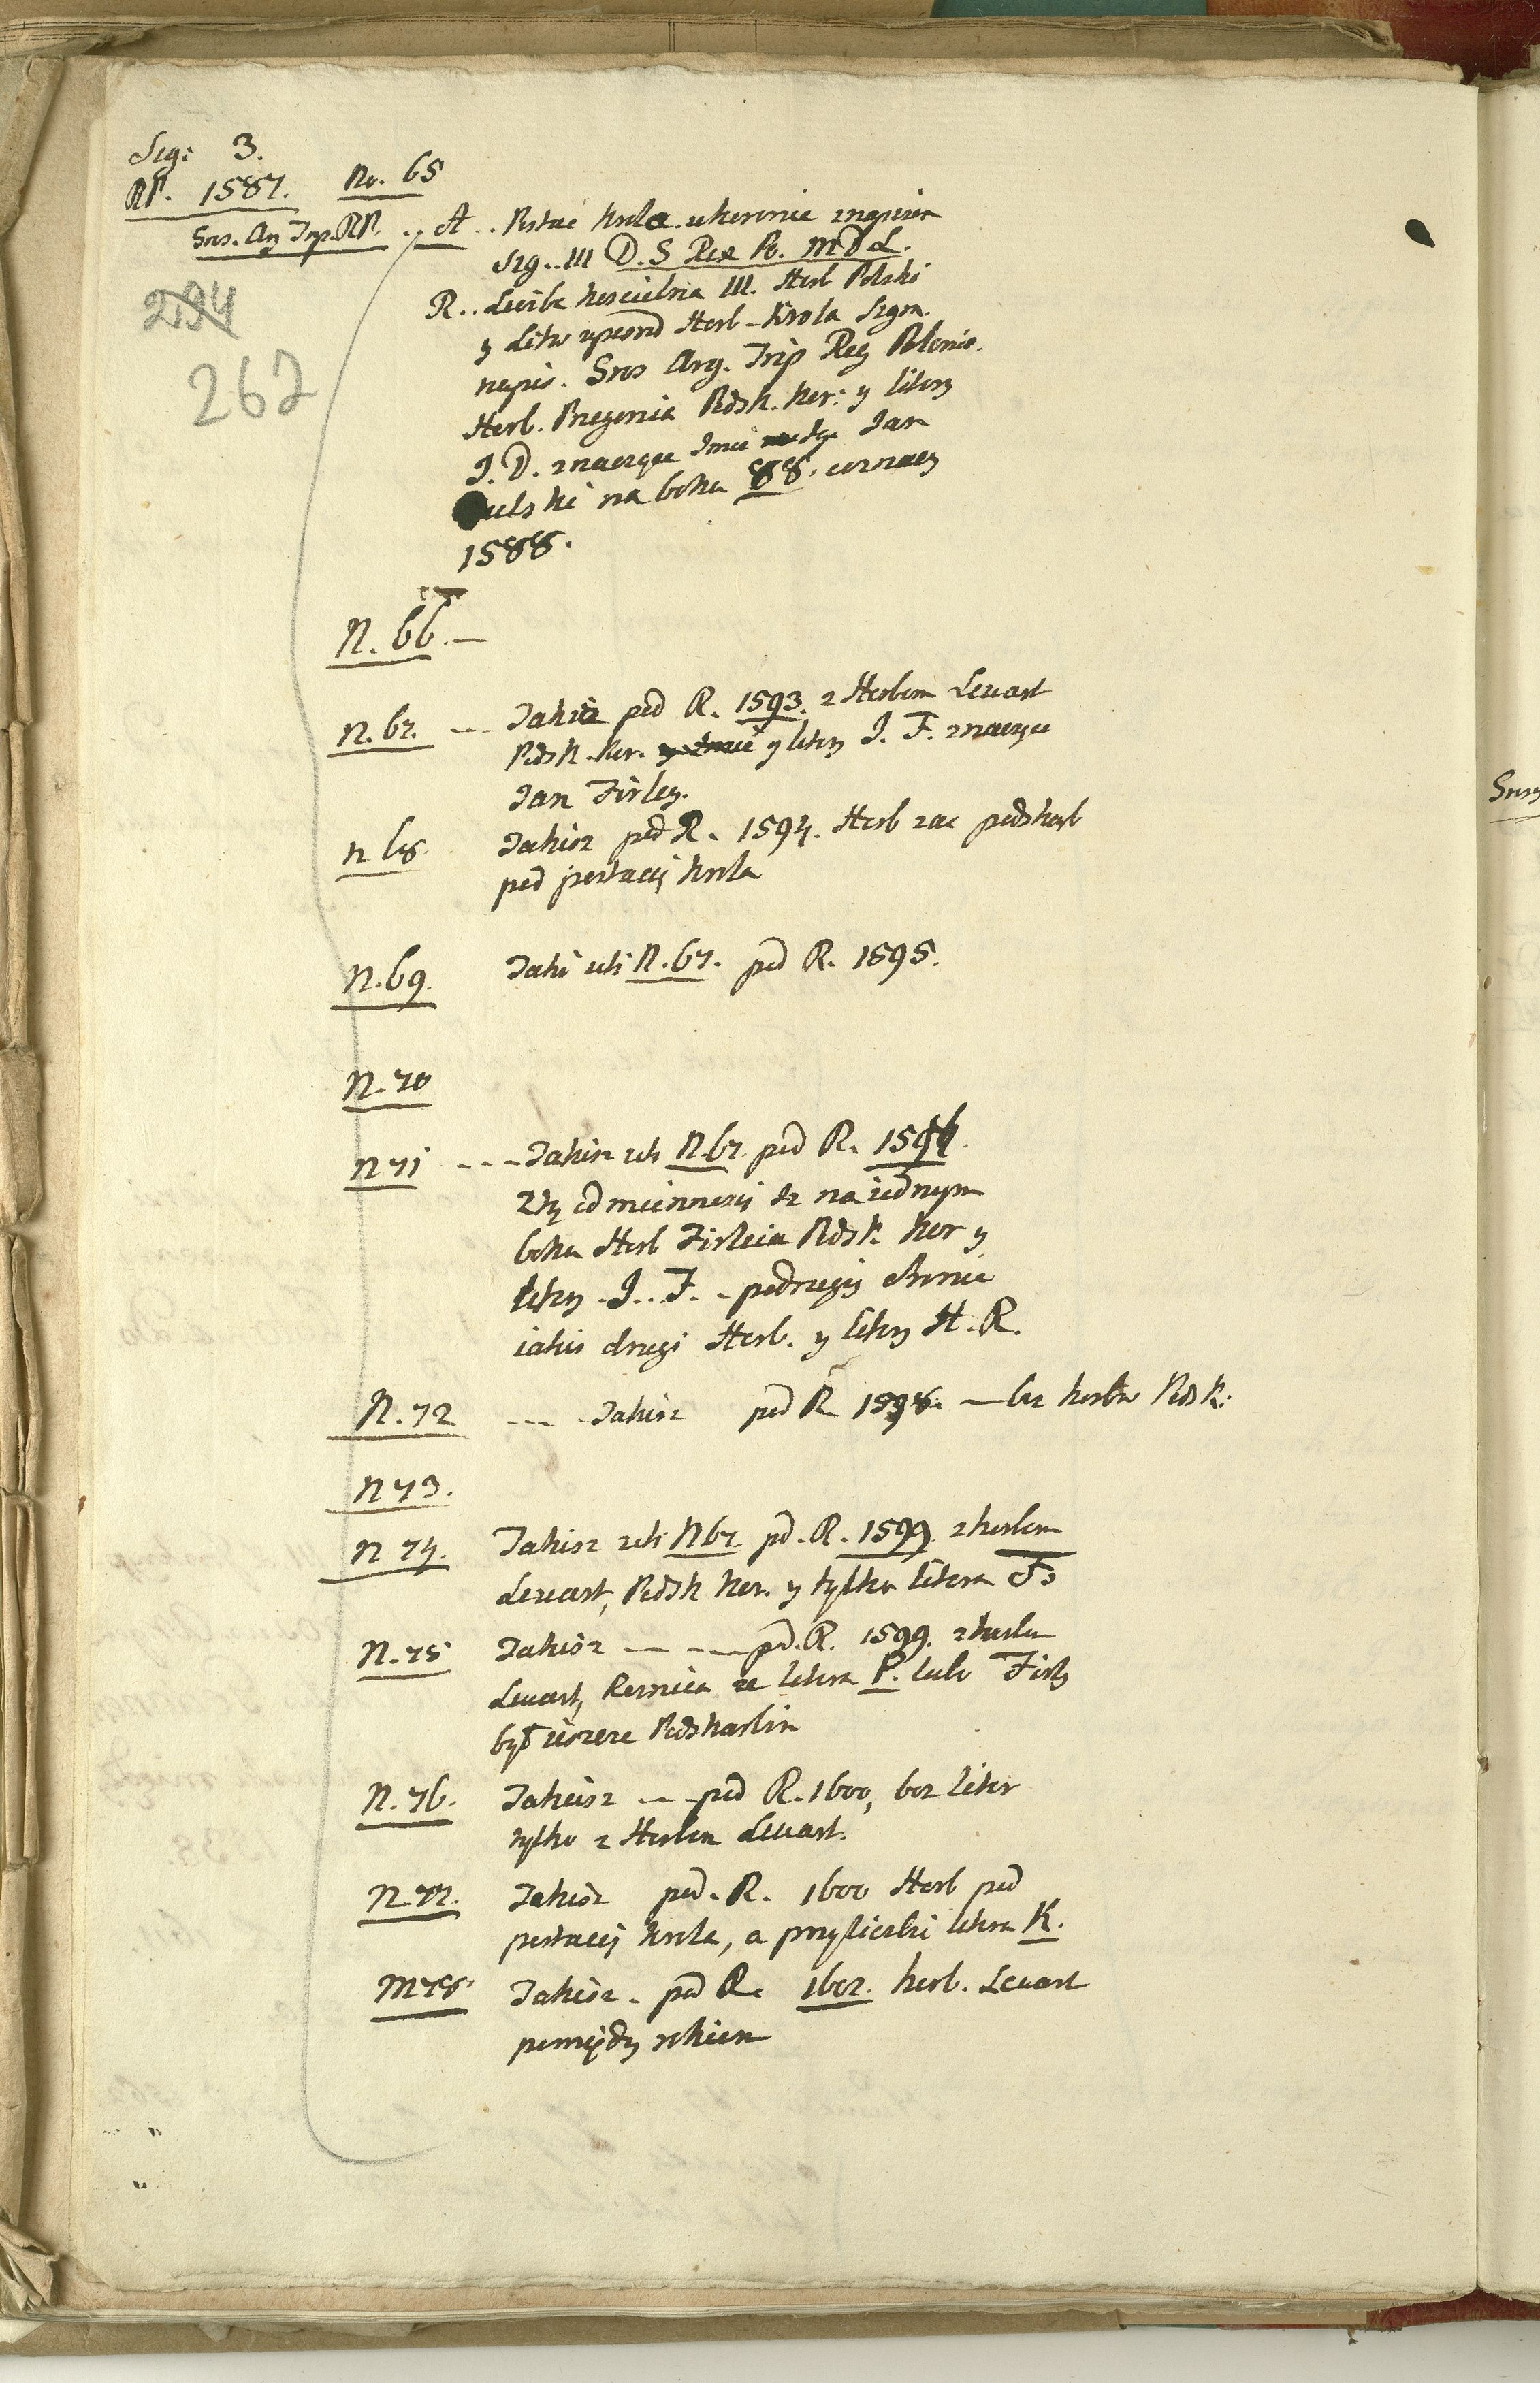 Sig: 3.
RP. 1587. No. 65
Sros. Arg Trip. RP. .. A .. Postać króla w koronie z napisem
Syg.. III D. S Rex Po. M D L.
R.. Liczba kościelna III. Herb Polski
y Litw z pośrod Herb - Krola Sigm
napis. Gros Arg. Trip Reg Polonie.
Herb. Przegonia Pdsk. Kor: y litery
J. D. znaczące Imie Jan
ulski na boku 88. coznaczy
1588.
N. 66. —
N. 67. --- Takisz pod R. 1593. z Herbem Lewart
Pdsk. Kor. y litery J. F. znaczące
Jan Firley.
N 68. Takisz pod R. 1594. Herb zas podskarb
pod postacią krola
N. 69. Taki iak N. 67. pod R. 1595.
N. 70
N 71 --- Takisz iak N 67. pod R. 1596.
z tą odmiennością że na iednym
boku Herb Firleia Pdsk. Kor y
litery . J.. F. . po drugiey stronie
iakis drugi Herb. y litery H. R.
N. 72 --- Takisz pod R 1598. — bez herbu Pdsk:
N 73.
N 74. Takisz iak N 67. pd. R. 1599. z herbem
Lewart, Podsk Kor. y tylko litera F
N. 75 Takisz — — — pd. R. 1599. z herbem
Lewart, Rożnica ze litera P. lubo Firley
był ieszcze Podskarbim
N. 76. Takisz — pod R. 1600, bez liter
tylko z Herbem Lewart.
N. 77. Takisz pod. R. 1600 Herb pod
postacią krola, a przy liczbie litera K.
N 78 Takisz . pod R. 1602. herb. Lewart
pomiędzy rokiem
294
262